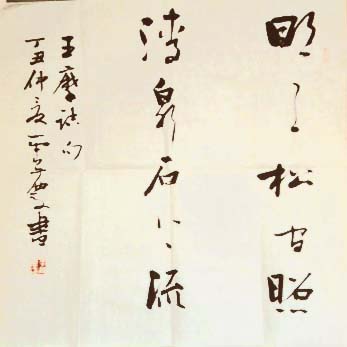 明月松間照
清泉石上流
王摩詰句
丁丑仲夏書